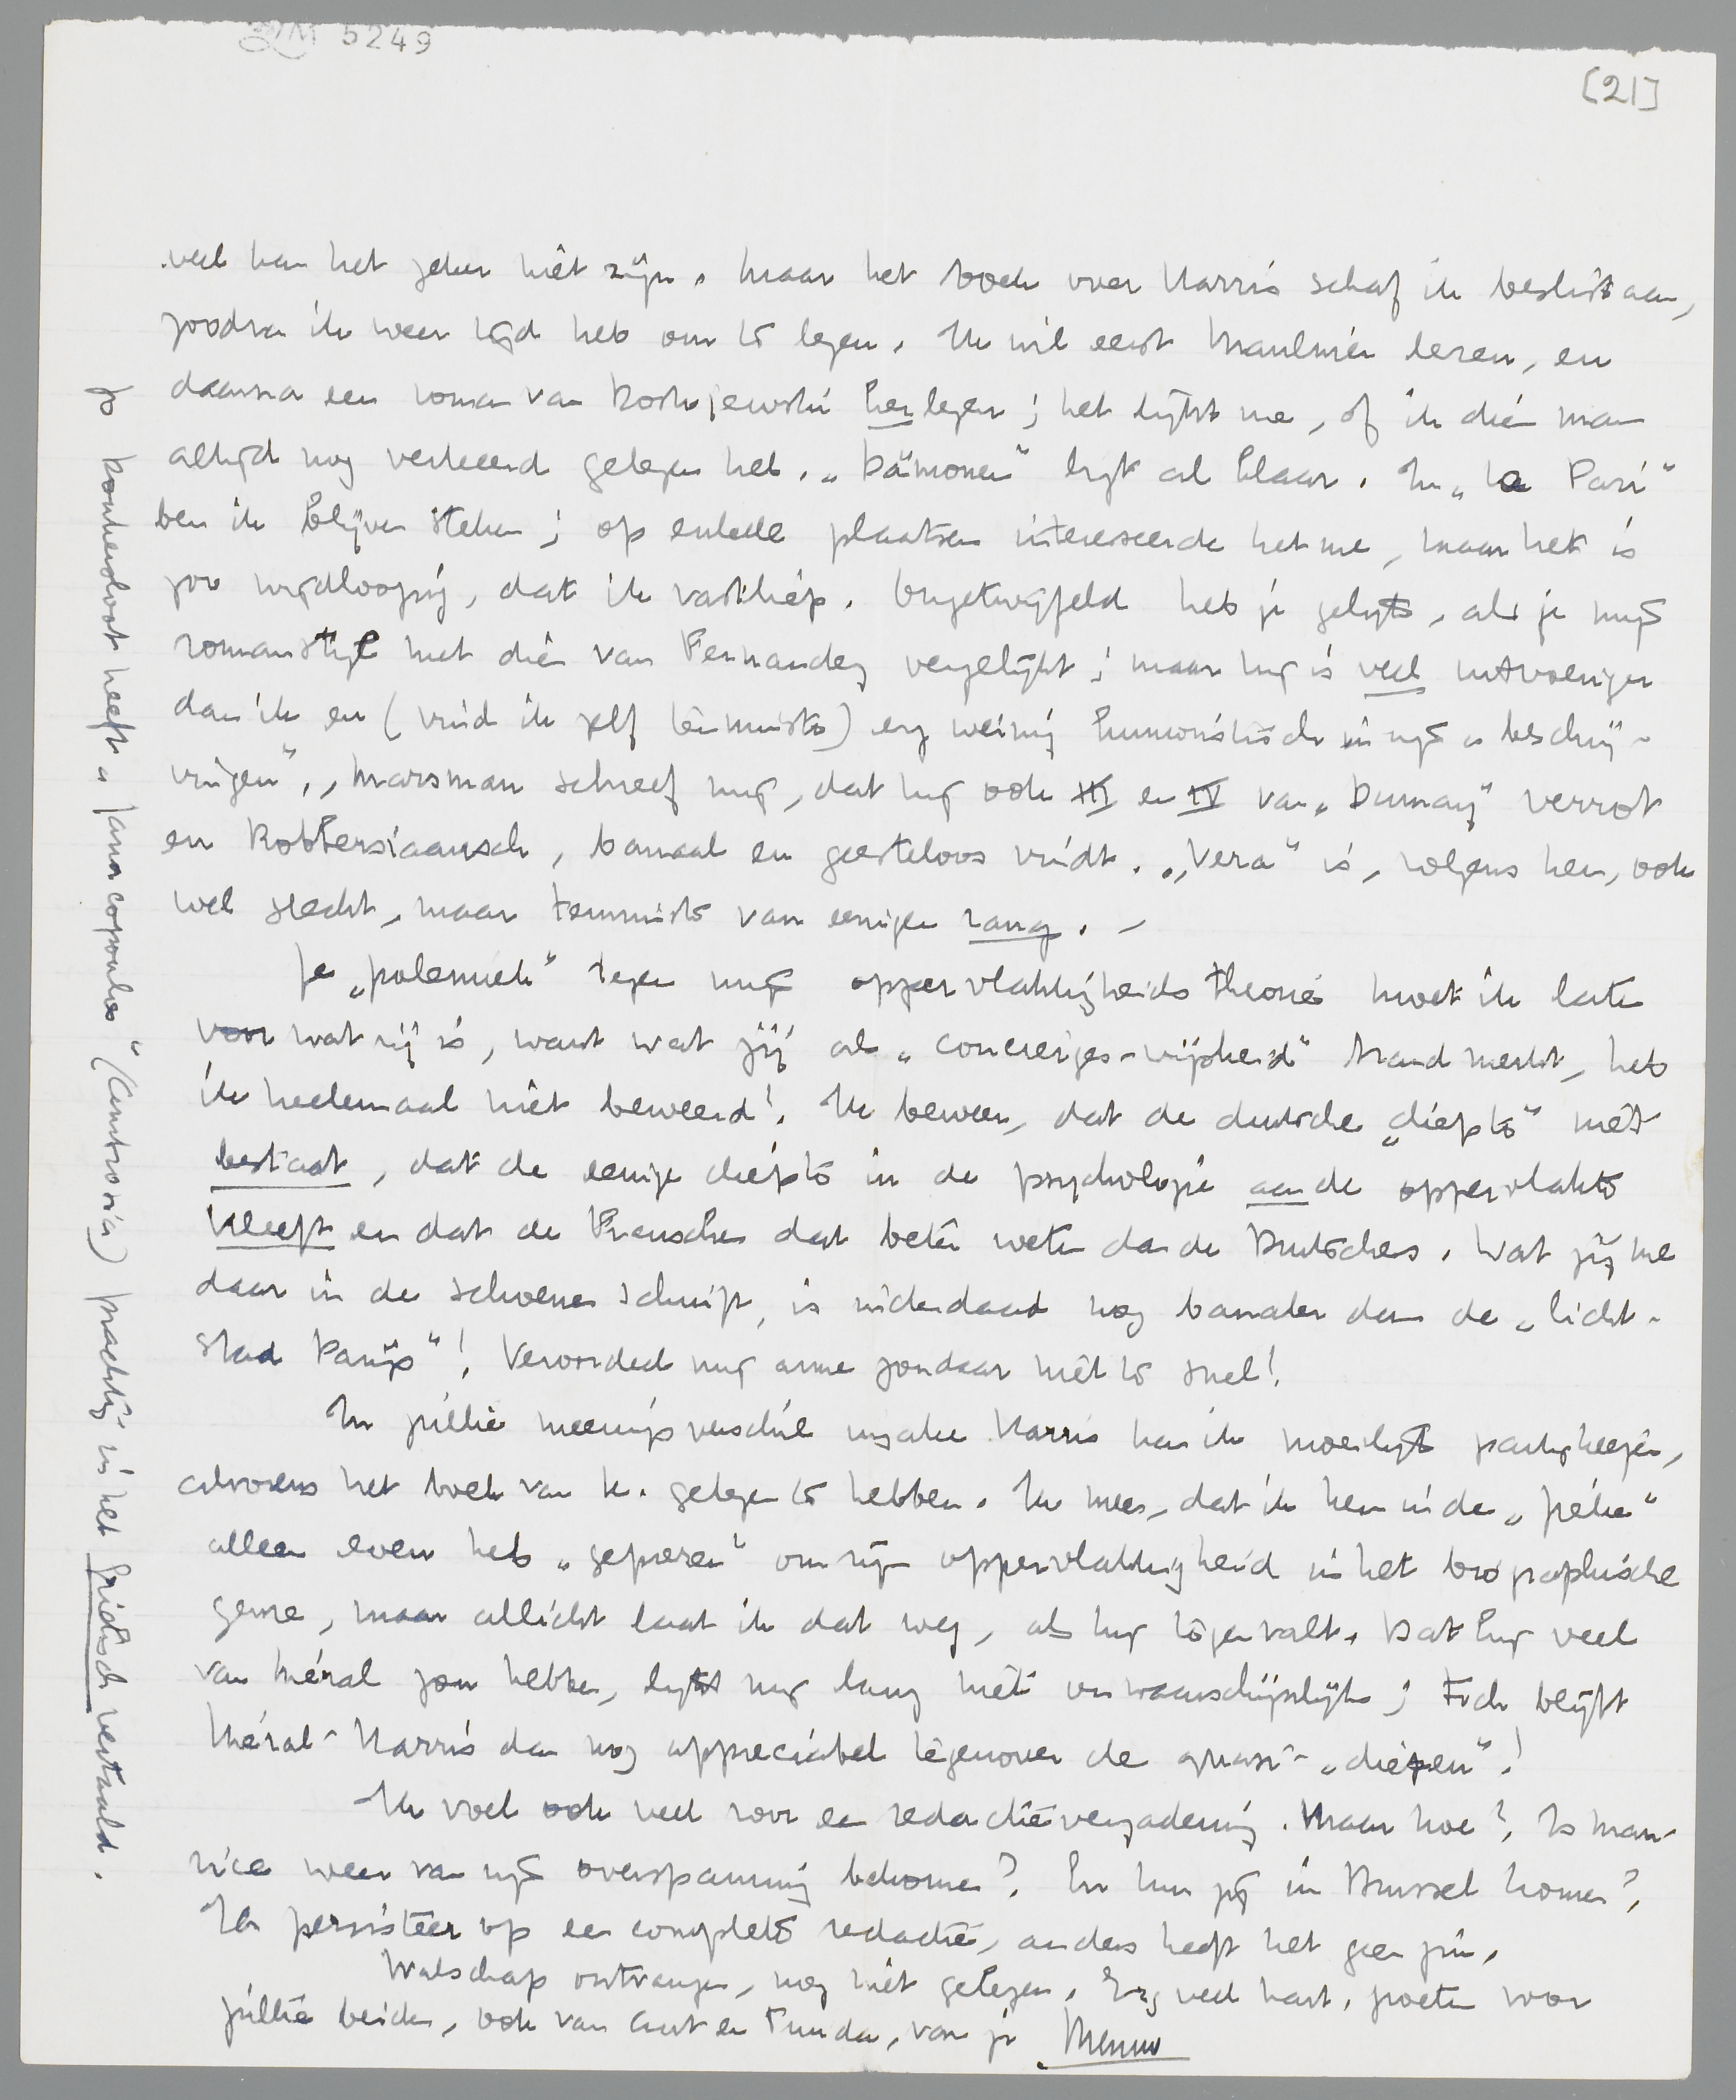 LM 5249
[21]
veel kan het zeker niet zijn. Maar het boek over Harris schaf ik beslist aan,
zoodra ik weer tijd heb om te lezen. Ik wil eerst Maulnier lezen, en
daarna een roman van Dostojewski herlezen; het lijkt me, of ik dien man
altijd nog verkeerd gelezen heb. „Dämonen" ligt al klaar. In „Le Pari"
ben ik blijven steken; op enkele plaatsen interesseerde het me, maar het is
zoo wijdloopig, dat ik vastliep. Ongetwijfeld heb je gelijk, als je mijn
romanstijl met dien van Fernandez vergelijkt; maar hij is veel uitvoeriger
dan ik en (vind ik zelf tenminste) erg weinig humoristisch in zijn „beschrij-
vingen". Marsman schreef mij, dat hij ook III en IV van „Dumay" verrot
en Robbersiaansch, banaal en geesteloos vindt. „Vera" is, volgens hem, ook
wel slecht, maar tenminste van eenigen rang. –
Je „polemiek" tegen mijn oppervlakkigheidstheorie moet ik laten
voor wat zij is, want wat jij als „concierges-wijsheid" brandmerkt, heb
ik heelemaal niet beweerd! Ik beweer, dat de duitsche „diepte" niet
bestaat, dat de eenige diepte in de psychologie aan de oppervlakte
kleeft en dat de Franschen dat beter weten dan de Duitschers. Wat jij me
daar in de schoenen schuift, is inderdaad nog banaler dan de „licht-
stad Parijs"! Veroordeel mij arme zondaar niet te snel!
In jullie meeningsverschil inzake Harris kan ik moeilijk partij kiezen,
alvorens het boek van K. gelezen te hebben. Ik meen, dat ik hem in de „pélie"
alleen even heb „geprezen" om zijn oppervlakkigheid in het biographische
genre, maar allicht laat ik dat weg, als hij tegenvalt. Dat hij veel
van Méral zou hebben, lijkt mij lang niet onwaarschijnlijk; toch blijft
Méral-Harris dan nog appreciabel tegenover de quasi-„diepen"!
Ik voel ook veel voor een redactievergadering. Maar hoe? Is Mau-
rice weer van zijn overspanning bekomen? En kun jij in Brussel komen?
Ik persisteer op een complete redactie, anders heeft het geen zin.
Walschap ontvangen, nog niet gelezen. Erg veel hart. groeten voor
jullie beiden, ook van Ant en Truida, van je Menno
Jo Donkersloot heeft „Janacopoulos" (Centrosia) prachtig in het Grieksch vertaald.